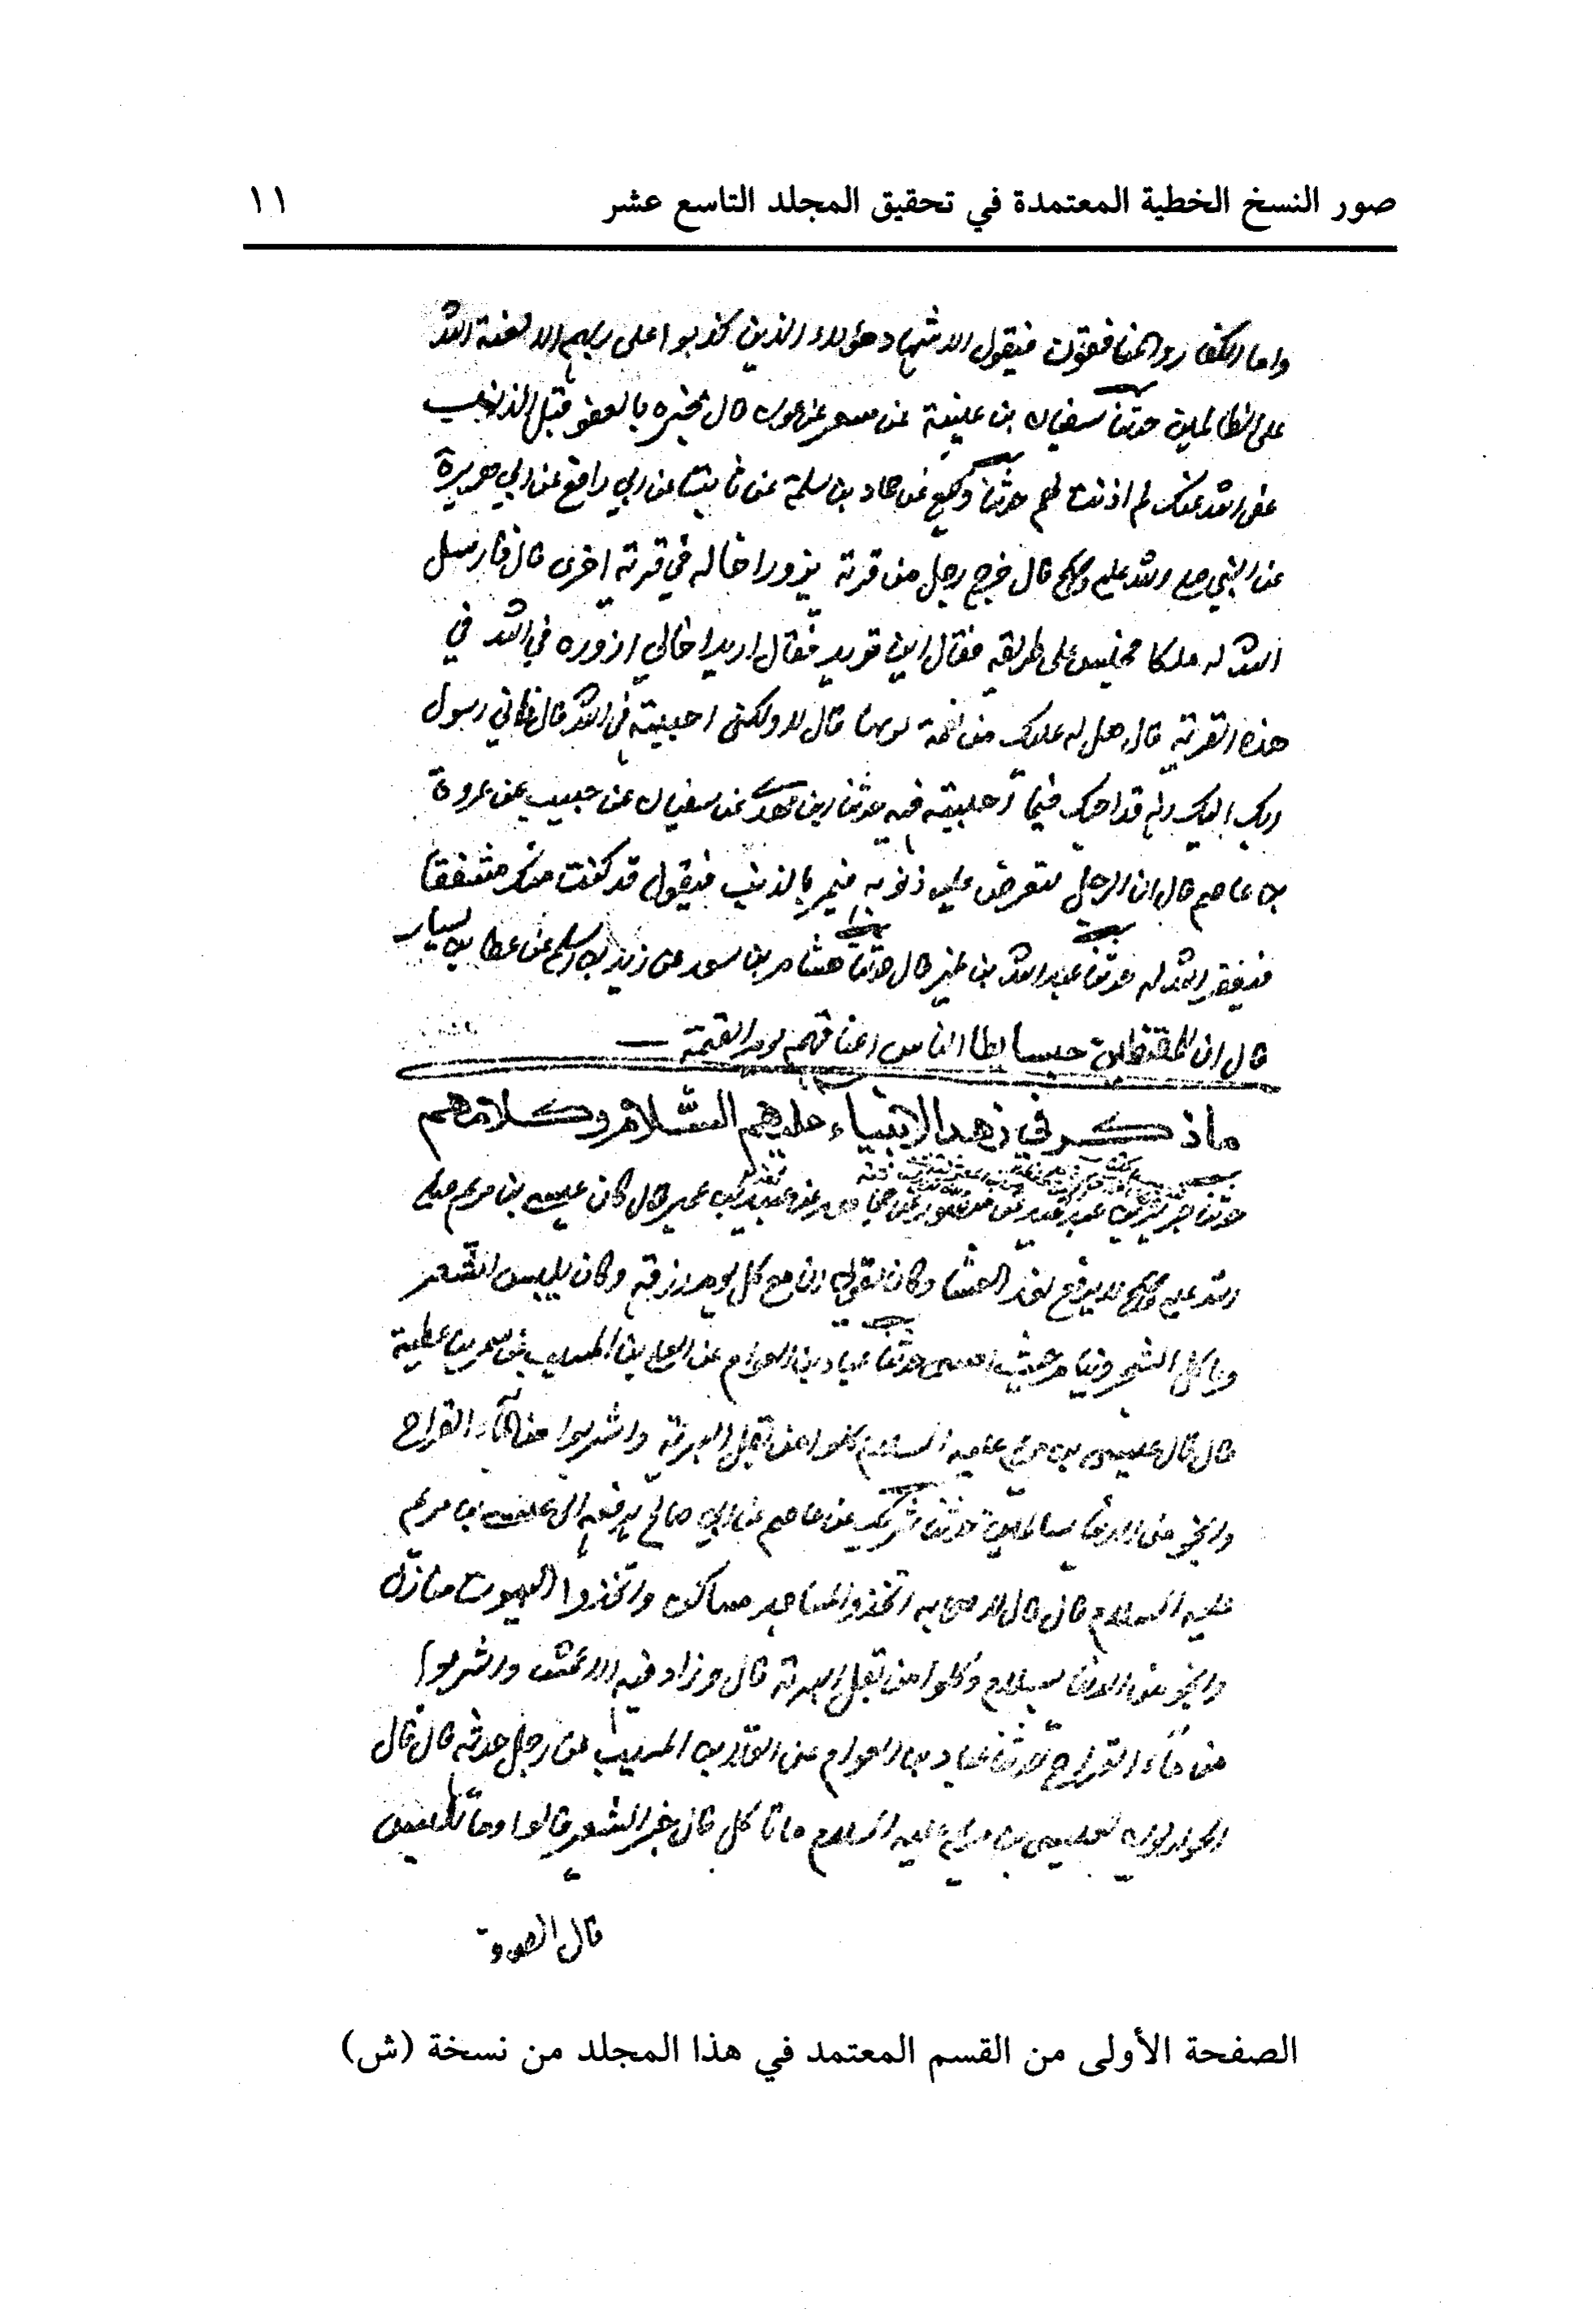 صور النسخ الخطية المعتمدة في تحقيق المجلد التاسع عشر ١١
واما الكفار والمنافقون فيقول الاشهاد هؤلاء الذين كذبوا على ربهم الا لعنة الله
على الظالمين حدثنا سفيان بن عيينة عن مسعر عن عون قال يخبره بالعفو قبل الذنب
عفى الله عنك لم اذنت لهم حدثنا وكيع عن حماد بن سلمة عن ثابت عن ابي رافع عن ابي هريرة
عن النبي صلى الله عليه وسلم قال خرج رجل من قرية يزور اخا له في قرية اخرى قال فارسل
الله له ملكا فجلس على طريقه فقال اين تريد فقال اريد اخا لي ازوره في الله في
هذه القرية قال هل له عليك من نعمة تربها قال لا ولكنى احببته في الله قال فاني رسول
ربك اليك انه قد احبك فيما احببته فيه حدثنا ابن مهدى عن سفيان عن حبيب عن عروة
بن عامر قال ان الرجل لتعرض عليه ذنوبه فيمر بالذنب فيقول قد كنت منك مشفقا
فيغفر الله له حدثنا عبد الله بن نمير قال حدثنا هشام بن سعد عن زيد بن اسلم عن عطا بن يسار
قال ان للمقنطين حبسا يطا الناس اعناقهم يوم القيمة
ما ذكر في زهد الانبياء عليهم السلام وكلامهم
حدثنا جرير بن عبد الحميد عن منصور عن مجاهد عن عبيد بن عمير قال كان عيسى بن مريم صلى
الله عليه وسلم لا يرفع لغد العشا وكان يقول ان مع كل يوم رزقه وكان يلبس الشعر
وياكل الشجر وينام حيث امسى حدثنا عباد بن العوام عن العلا بن المسيب عن سمر بن عطية
قال قال عيسى بن مريم عليه السلام كلوا من بقل البرية واشربوا من الماء القراح
وانجو من الدنيا سالمين حدثنا شريك عن عاصم عن ابي صالح يرفعه الى عيسى بن مريم
عليه السلام قال قال لاصحابه اتخذوا المساجد مساكن واتخذوا البيوت منازل
وانجو من الدنيا بسلام وكلوا من بقل البرية قال وزاد فيه الاعمش واشربوا
من ماء القراح حدثنا عباد بن العوام عن العلا بن المسيب عن رجل حدثه قال قال
الحواريون لعيسى بن مريم عليه السلام ما تاكل قال خبز الشعير قالوا وما تلبس
قال الصوف
الصفحة الأولى من القسم المعتمد في هذا المجلد من نسخة (ش)